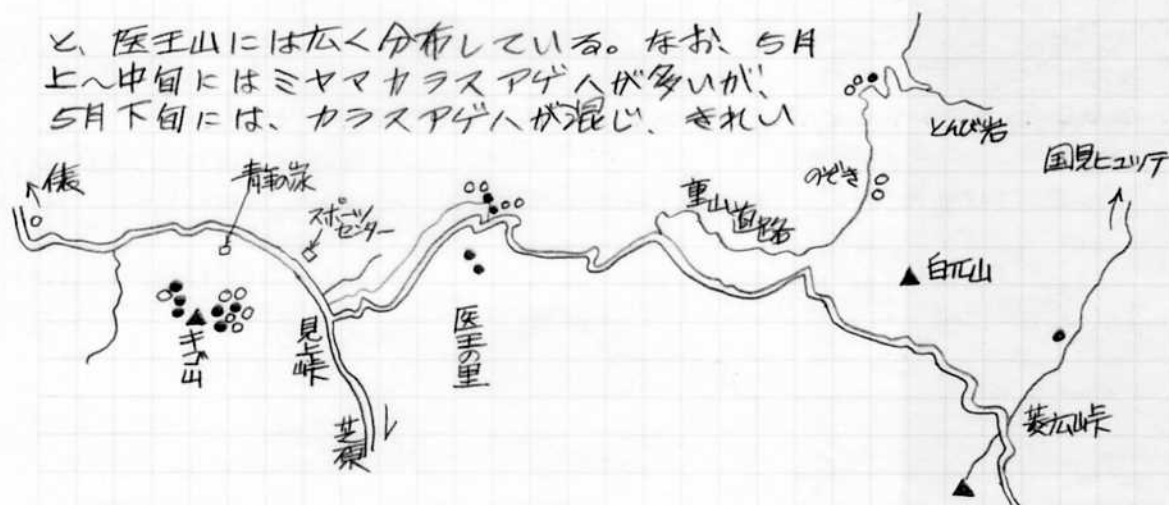 と、医王山には広く分布している。なお、5月
上～中旬にはミヤマカラスアゲハが多いが、
5月下旬には、カラスアゲハが混じ、きれい
俵
青年の家
スポーツ
センター
キゴ山
見上峠
芝原
医王の里
車山道路
のぞき
とんび岩
国見ヒュッテ
白兀山
菱広峠